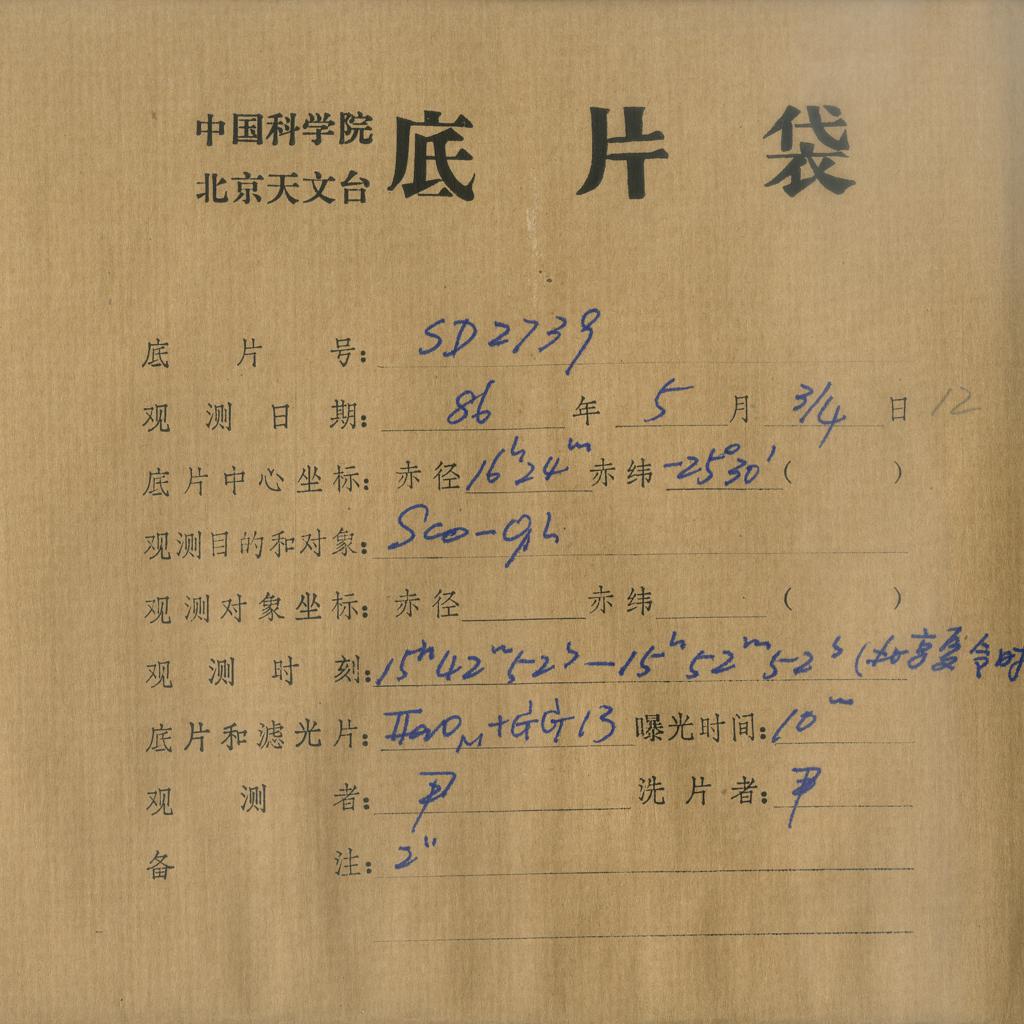 中国科学院
北京天文台
底片袋
底片号: SD2739
观测日期: 86年5月3/4日 12
底片中心坐标: 赤径16h24m赤纬-25°30′( )
观测目的和对象: Sco-gh
观测对象坐标: 赤径 赤纬 ( )
观测时刻: 15h42m52s—15h52m52s (
底片和滤光片: IIaOM+GG13 曝光时间: 10m
观测者: 尹 洗片者: 尹
备注: 2″